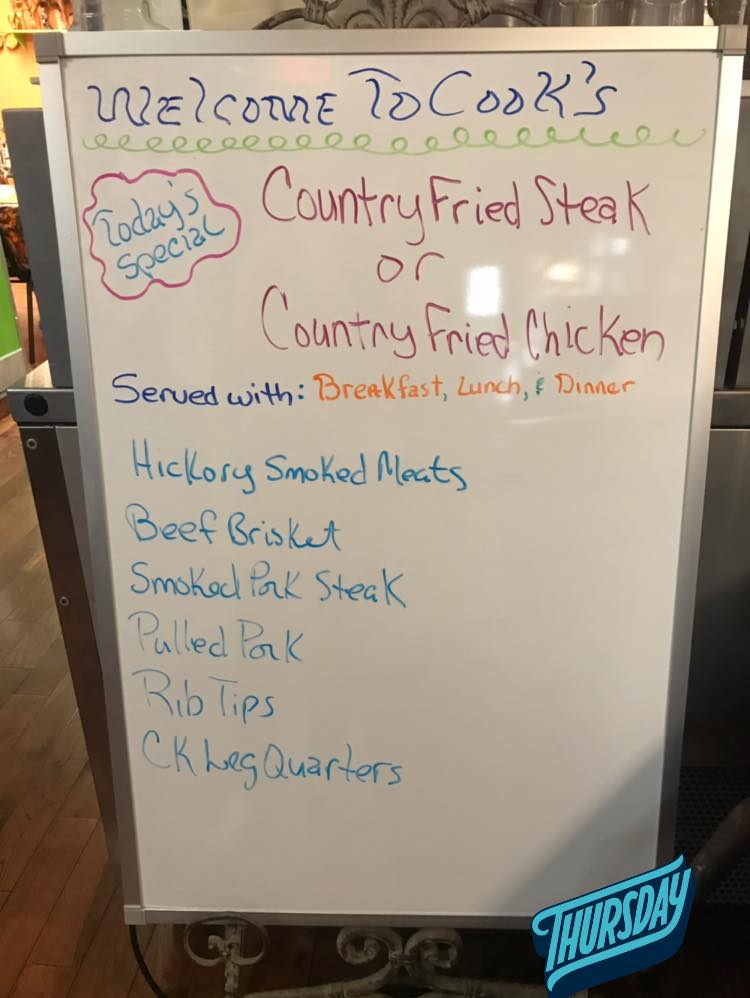 Welcome To Cook's
Today's
Special
Country Fried Steak
or
Country Fried Chicken
Served with: Breakfast, Lunch, & Dinner
Hickory Smoked Meats
Beef Brisket
Smoked Pork Steak
Pulled Pork
Rib Tips
CK Leg Quarters
THURSDAY